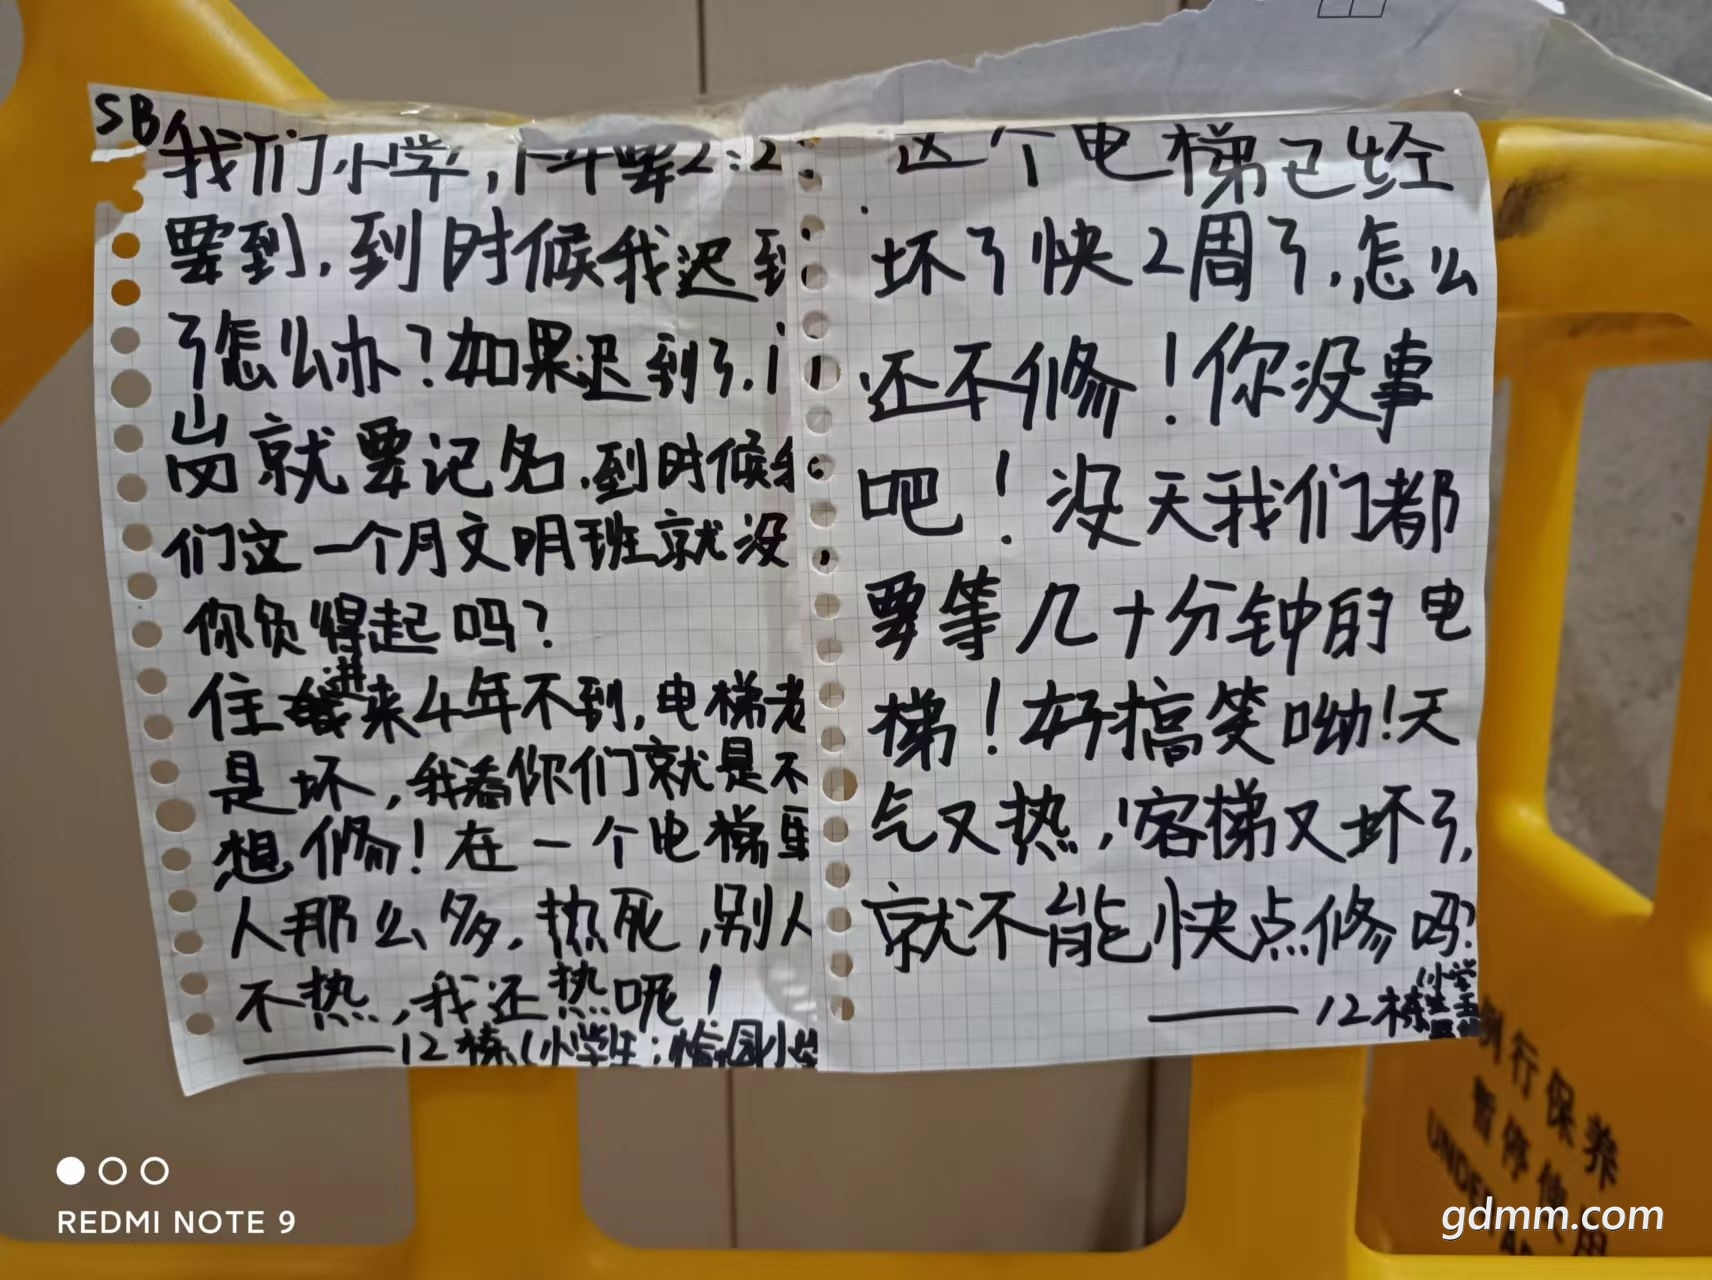 SB
我们小学,下午要2:2
要到,到时候我迟到
了怎么办?如果迟到了,门
岗就要记名,到时候我
们这一个月文明班就没,
你负得起吗?
住进来4年不到,电梯老
是坏,我看你们就是不
想修!在一个电梯里
人那么多,热死,别人
不热,我还热呢!
——12栋(小学生:愉园小学
这个电梯已经
坏了快2周了,怎么
还不修!你没事
吧!没天我们都
要等几十分钟的电
梯!好搞笑呦!天
气又热,客梯又坏了,
就不能快点修吗?
——12栋
(小学
例行保养
暂停使用
UNDE
REDMI NOTE 9
gdmm.com